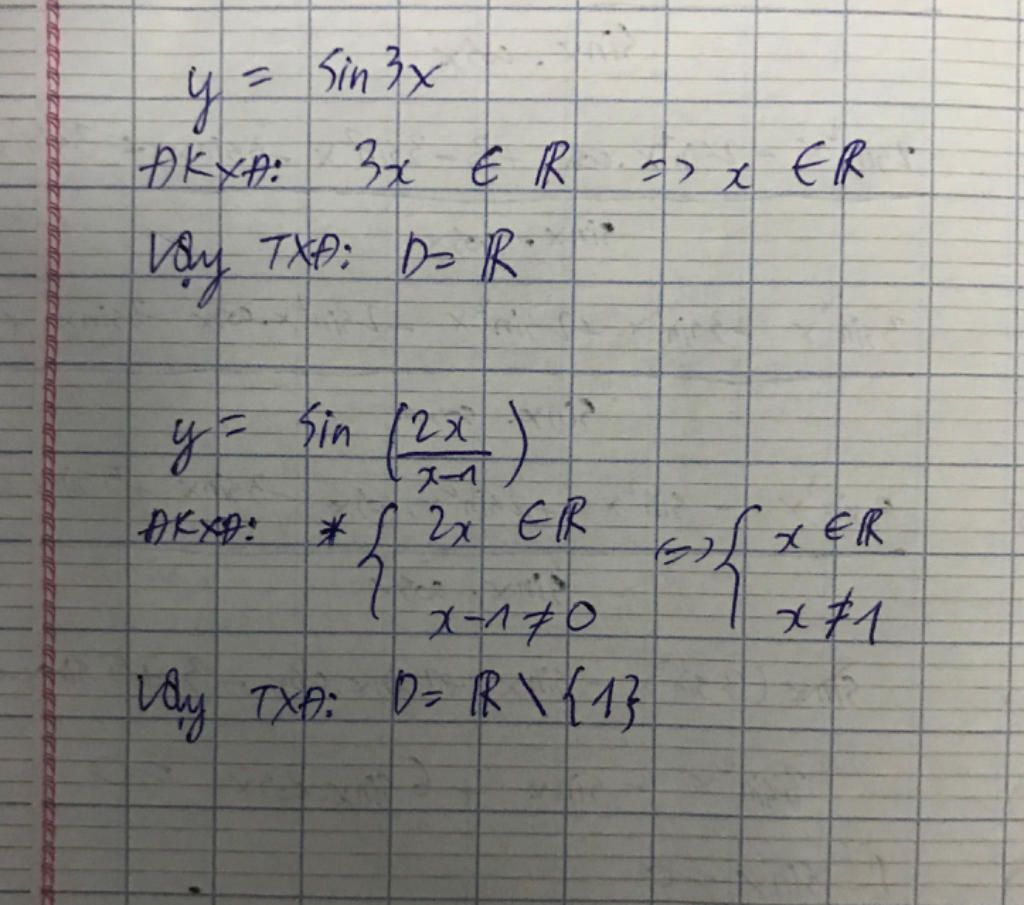 y = sin 3x
ĐKXĐ: 3x ∈ ℝ => x ∈ ℝ
Vậy TXĐ: D = ℝ
y = sin (2x / x-1)
ĐKXĐ: * { 2x ∈ ℝ <=> { x ∈ ℝ
x-1 ≠ 0 x ≠ 1
Vậy TXĐ: D = ℝ \ {1}